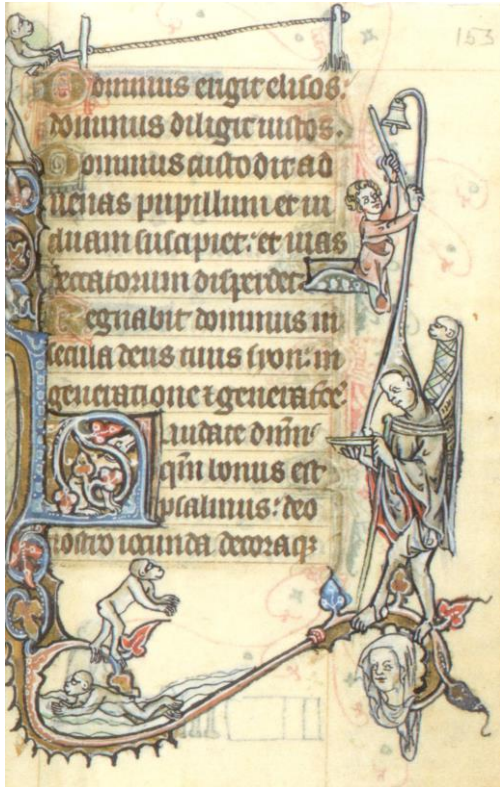 153
Dominus erigit elisos:
dominus diligit iustos.
Dominus custodit ad
uenas pupillum et ui
duam suscipiet: et uias
peccatorum disperdet.
Regnabit dominus in
secula deus tuus syon: in
generatione ⁊ generatōe
Laudate dnm̄
qm̄ bonus est
psalmus: deo
nostro iocunda decoraqꝫ